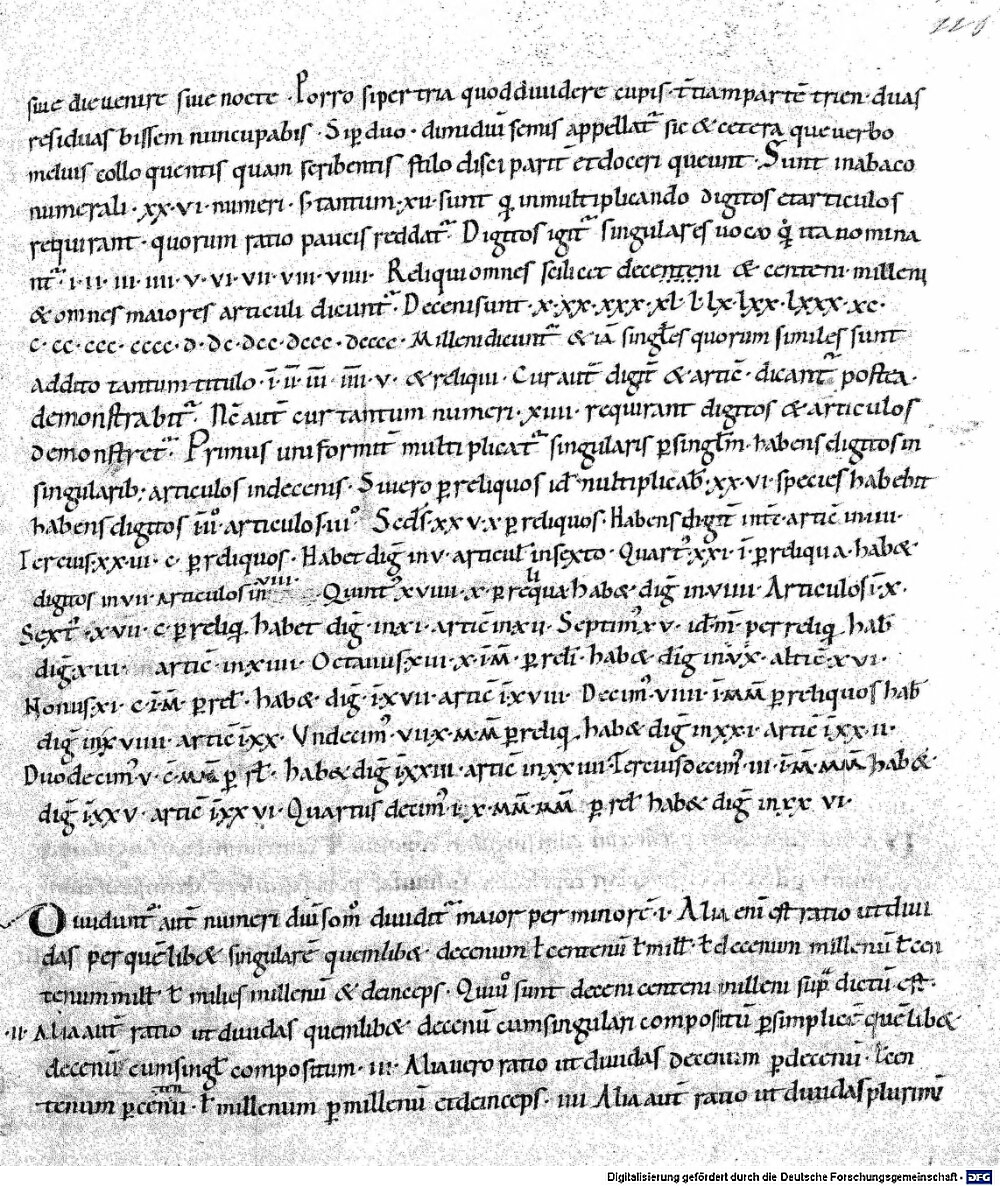 siue die uenire siue nocte · Porro si per tria quod diuidere cupis · t̄tiam partē trien · duas
residuas bissem nuncupabis · Si p̱ duo · dimidiū semis appellat᷑ sic & cetera que uerbo
melius collo quentis quam scribentis stilo disci parit̄ et doceri queunt · Sunt in abaco
numerali · xx · vi · numeri · s; tantum · xii · sunt q̇ in multiplicando digitos et articulos
requirant · quorum ratio paucis reddat᷑ · Digitos igit᷑ singulares uoco q̇ ita nomina
nt᷑ · i · ii · iii · iiii · v · vi · vii · viii · viiii · Reliqui omnes scilicet deceni & centeni · milleni
& omnes maiores articuli dicunt᷑ · Deceni sunt · x · xx · xxx · xl · l · lx · lxx · lxxx · xc ·
c · cc · ccc · cccc · d · dc · dcc · dccc · dcccc · Milleni dicunt᷑ & iā singl̄es quorum similes sunt
addito tantum titulo · ī · īī · īīī · īīīī · v · & reliqui · Cur aut̄ digit̄ & artic̄ · dicant᷑ postea ·
demonstrabit᷑ · Nc̄ aut̄ cur tantum numeri · xiiii · requirant digitos & articulos
demonstret᷑ · Primus uniformit̄ multiplicat᷑ singularis p̱ singl̄m · habens digitos in
singularib; articulos in decenis · Si uero p̱ reliquos id̄ multiplicab̄ · xx · vi · species habebit
habens digitos
Tercius · xx · iii · c · p̱ reliquos · Habet dig̃ in v · articul̄ in sexto · Quart᷒ · xxi · ī · p̱ reliqua · hab&
digitos in vii · articulos in viii · Quint᷒ xviiii · x · p̱ reliqua hab& dig̃ in viiii · Articulos ī · x ·
Sext᷒ · xvii · c · p̱ reliq · habet dig̃ · in xi · artic̄ in xii · Septim᷒ xv · id̄ · m̄ · per reliq · hab̄
dig̃ · xiii · artic̄ · in xiiii · Octauus · xiii · x · ī · m̄ · p̱ reli · hab& · dig̃ in xv · artic̄ · xvi ·
Nonus · xi · c · ī · m̄ · p̱ rel̄ · hab& · dig̃ · ī xvii · artic̄ ī xviii · Decim᷒ · viiii · ī · m̄m̄ p̱ reliquos hab̄
dig̃ in xviiii · artic̄ ī xx · Undecim᷒ · vii x · m̄ · m̄ p̱ reliq · hab& dig̃ in xxi · artic̄ ī xx · ii ·
Duodecim᷒ v · c̄ · m̄m̄ p̱ rel̄ · hab& dig̃ ī xxiii · artic̄ in xx iiii · Tercius decim᷒ · iii · ī · m̄ · m̄m̄ hab& ·
dig̃ ī xx v · artic̄ ī xx vi · Quartus decim᷒ · i · x · m̄m̄ · m̄m̄ p̱ rel̄ hab& dig̃ in xx vi ·
Diuidunt᷑ aut̄ numeri diuidit᷑ maior per minorē · i · Alia eni ē st ratio ut diui
das per quēlib& singularē quemlib& decenum ł centenū ł mill̄ · ł decenum millenū ł cen
tenum mill̄ ł milies millenū & deinceps · sunt deceni centeni milleni sup᷑ dictū est ·
· ii · Alia aut̄ ratio ut diuidas quemlib& decenū cum singulari compositū p̱ simplicē quēlib&
decenū cum singl̄ compositum · iii · Alia uero ratio ut diuidas decenum p̱ decenū · ł cen
tenum p̱ centenū · ł millenum p̱ millenū et deinceps · iiii Alia aut̄ ratio ut diuidas plurimū
Digitalisierung gefördert durch die Deutsche Forschungsgemeinschaft · DFG